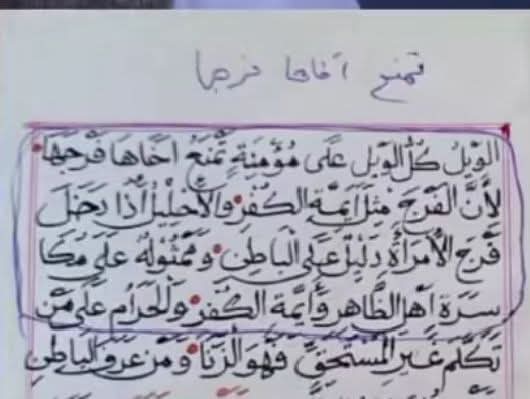 تمنع اخاها فرجها
الويلُ كُلُّ الويل عَلى مُؤمِنَةٍ تَمْنَعُ اخَاهَا فَرْجَهَا
لأنَّ الفَرْجَ مِثل اَيمَّةِ الكُفْرِ والاحْلِيْلُ اُذَا دَخَلَ
فَرْجَ الأمرَأةِ دَلِيْلٌ عَلَى الباطِنِ وَمَمْثُولُهُ عَلَى مُكَا
سَرَةِ اَهْلِ الظَّاهِرِ وَاَيمَّةِ الكُفْرِ والحَرَام عَلَى مَنْ
تَكَلَّمَ عَلَى غَيرِ المُسْتَحِقِّ فَهُوَ الزِنَا وَمَن عَرَفَ الباطِنِ